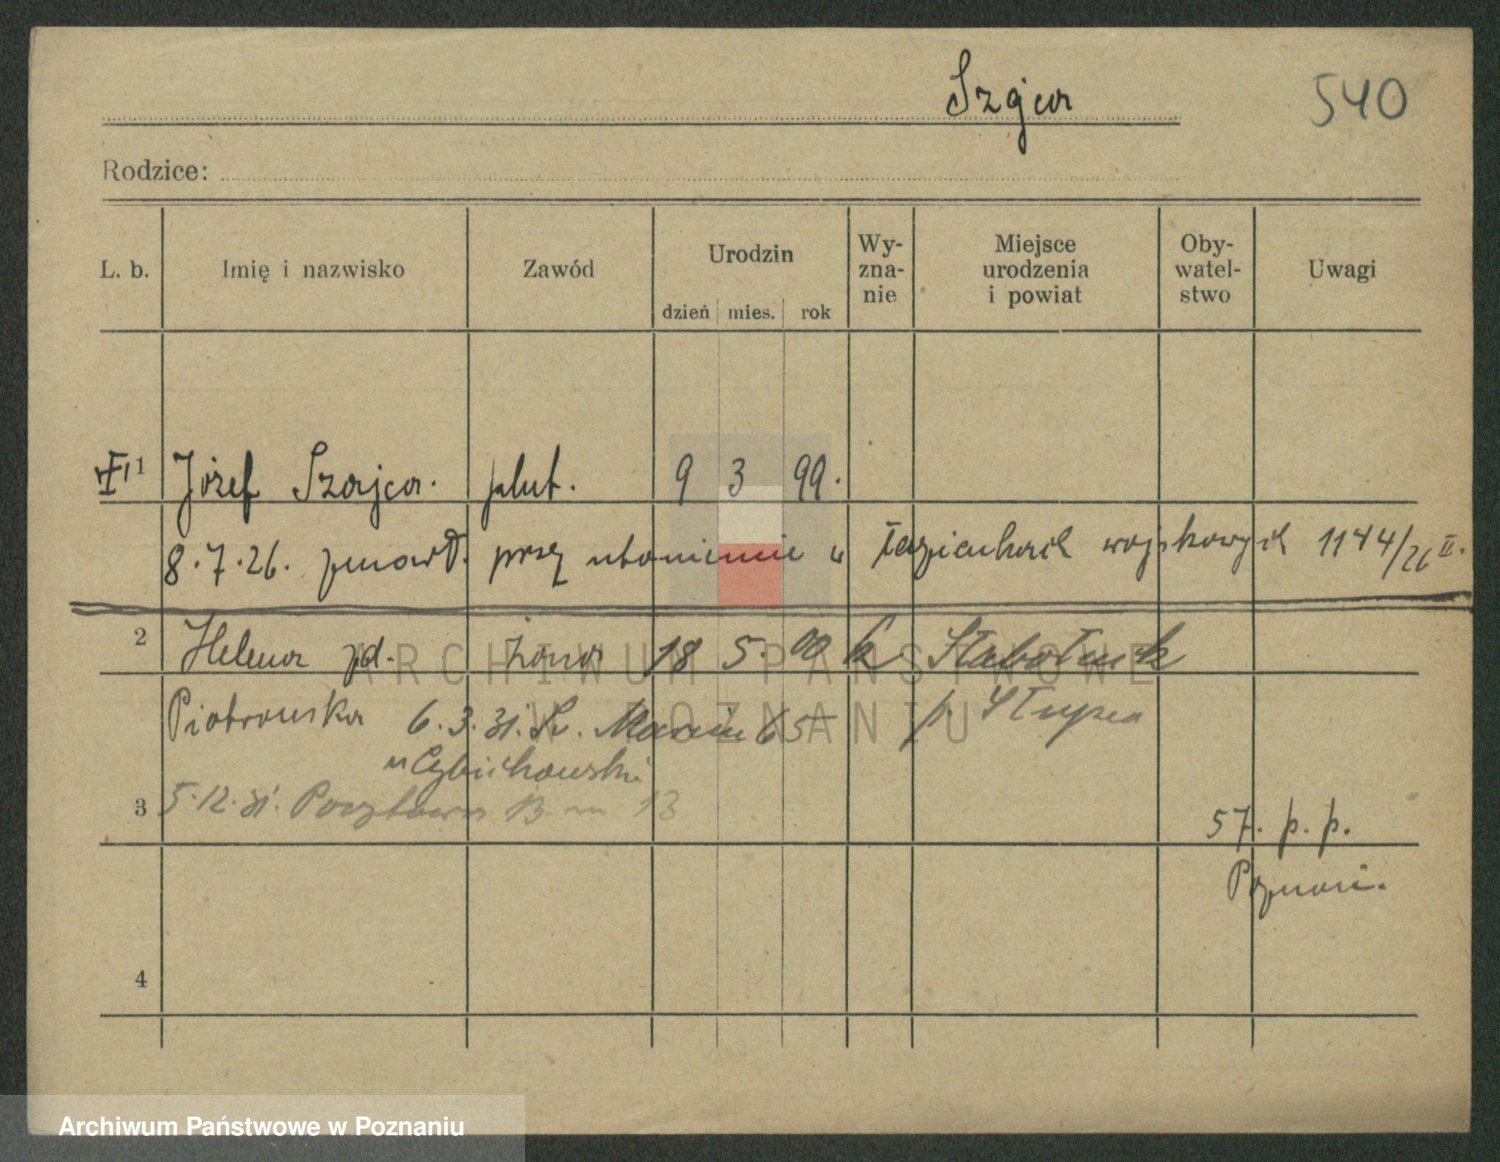 Szajca 540
Rodzice:
L. b. Imię i nazwisko Zawód Urodzin dzień mies. rok Wy-zna-nie Miejsce urodzenia i powiat Oby-watel-stwo Uwagi
1 Józef Szajca. plut. 9 3 99.
8.7.26. zmarł. przy utonięciu w łazienkach wojskowych 1144/26 II.
2 Helena zd. żona 18 5. 00 k
Piotrowska 6.3.31. Św. Marcin 65 p. Słupca
u Cybichowski
3 5.12.31. Pocztowa 13 m 13
57. p. p.
Poznań.
4
ARCHIWUM PAŃSTWOWE
W POZNANIU
Archiwum Państwowe w Poznaniu